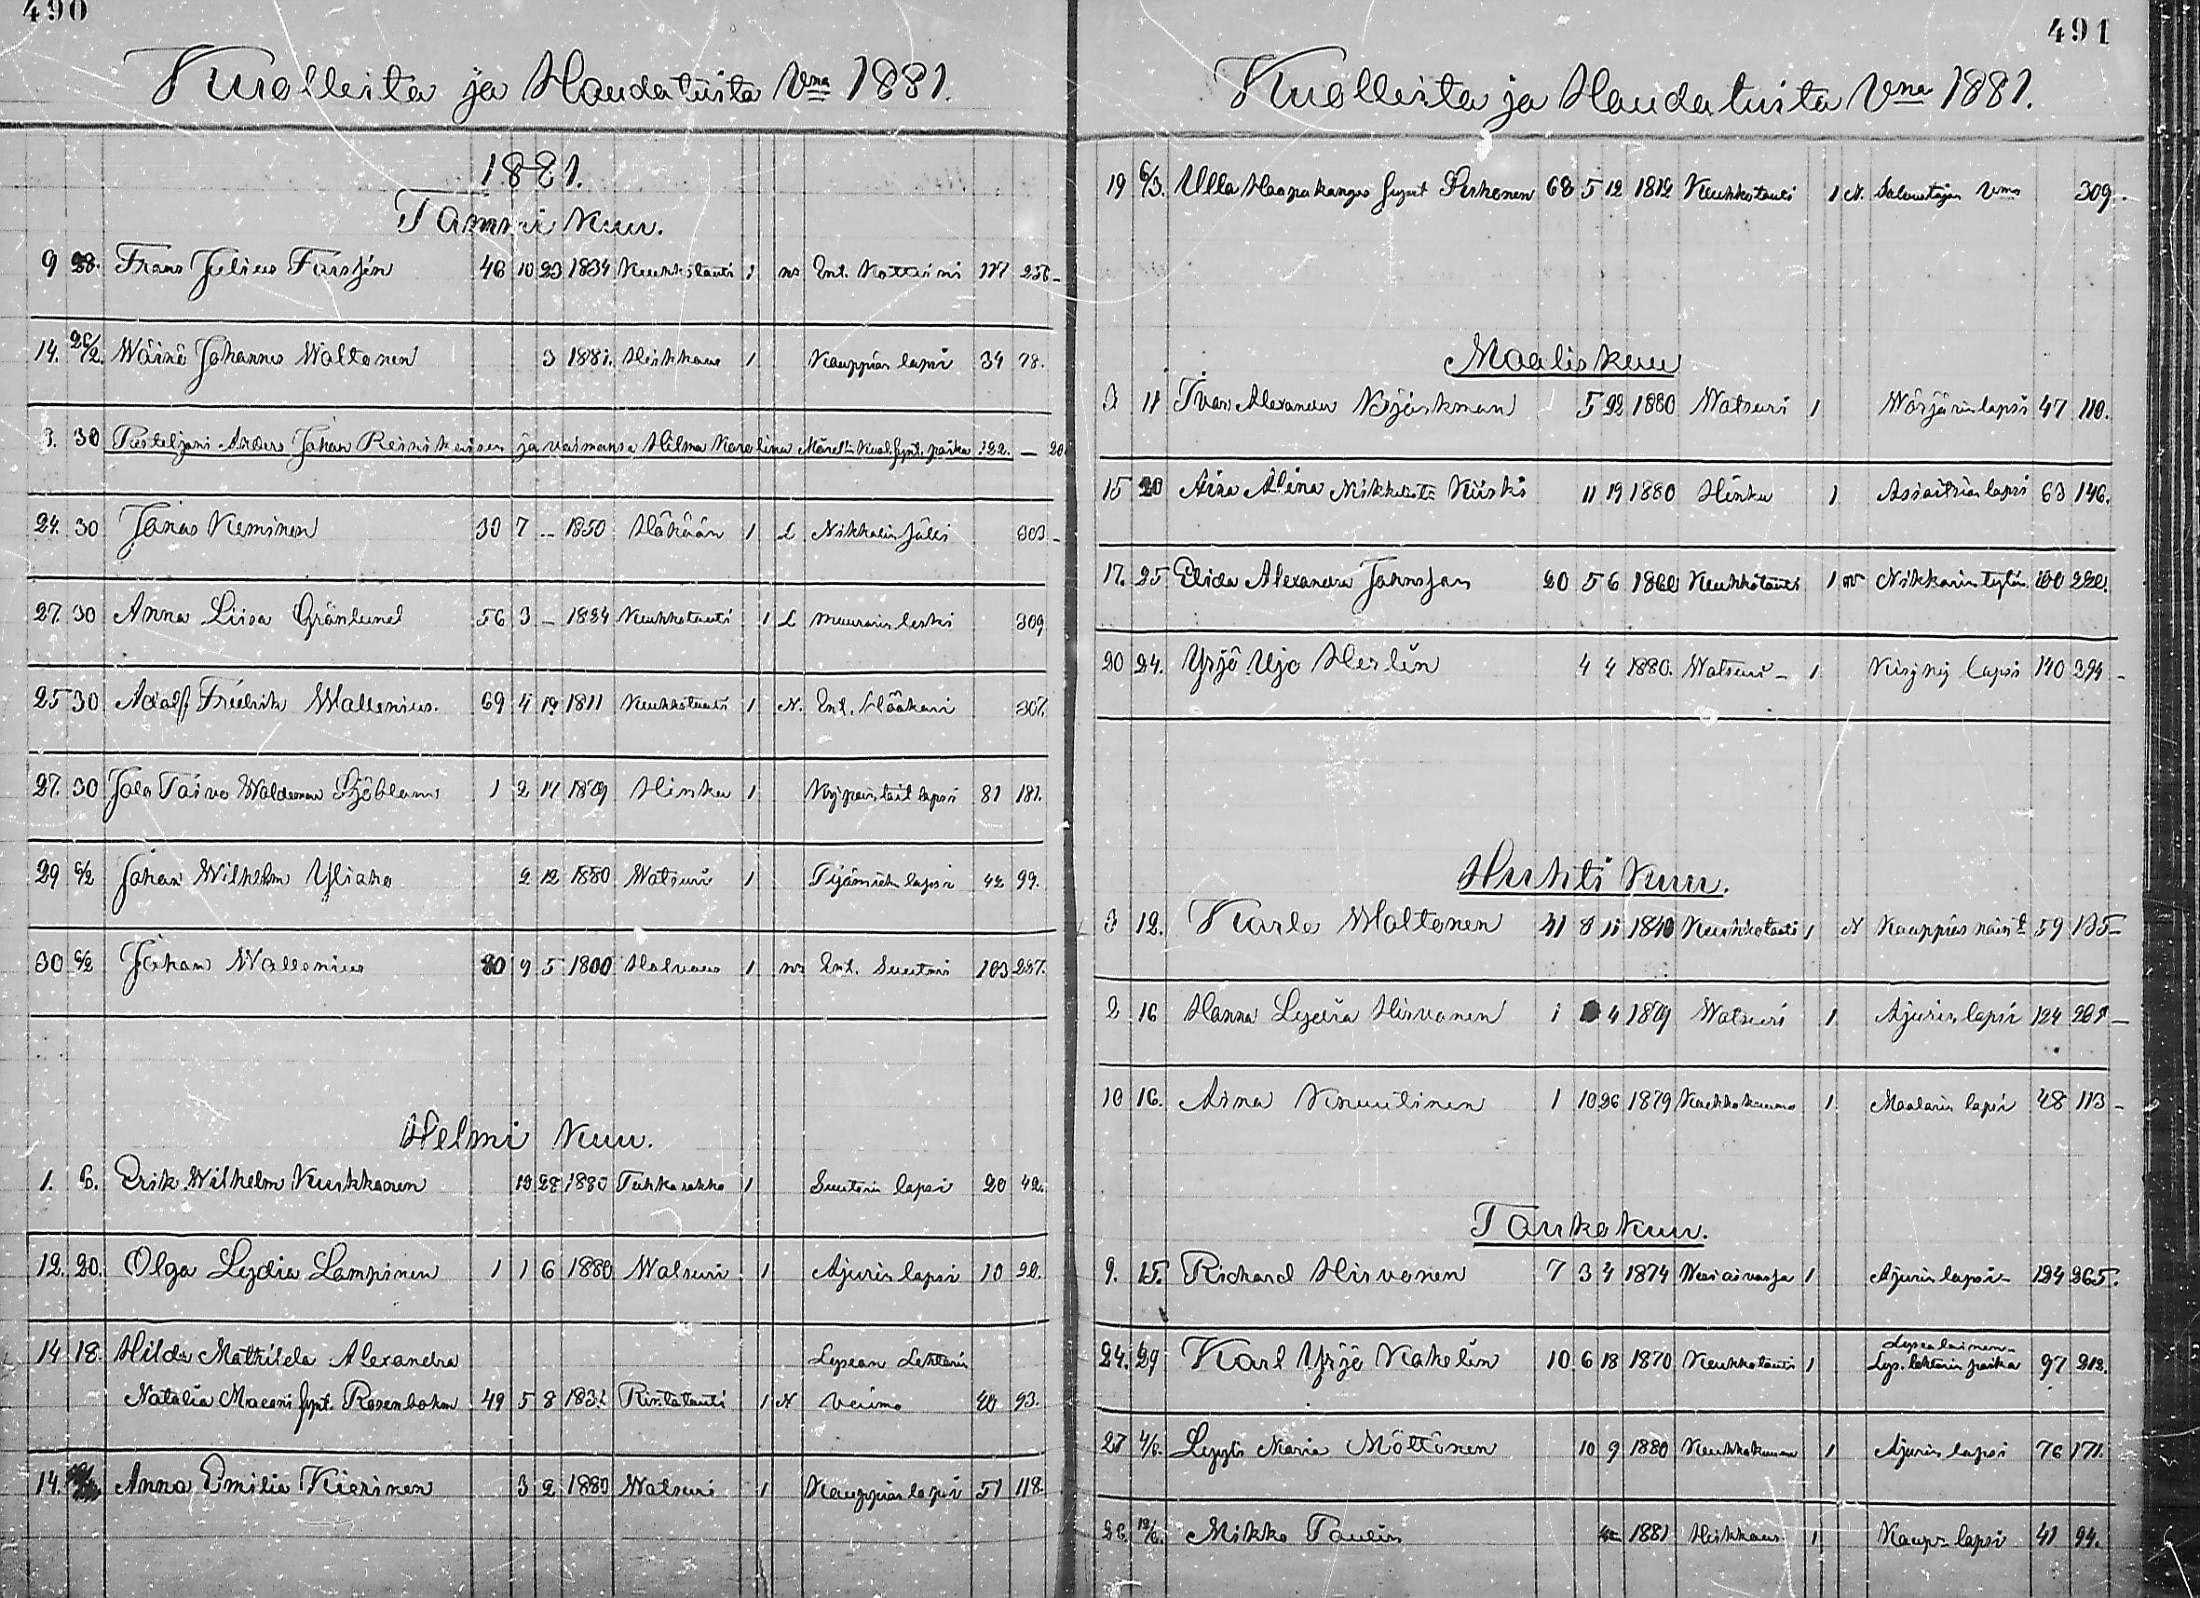 490
Kuolleita ja Haudatuita Vna 1881.
1881.
Tammi Kuu.
9 28. Frans Julius Forssén 46 10 23 1834 Keuhkotauti 1 Ent. 117 256
14. 26/2. Wäinö Johannes Waltonen 3 1881. Heikkous 1 Kauppias lapsi 34 78.
3. 30 Anders Johan Reinikainen ja vaimonsa Hilma Karolina Kuol. synt. poika 122. — 20
24. 30 Jonas Keminen 30 7 — 1850 1 L Nikkarin 303
27. 30 Anna Liisa Grönlund 56 3 — 1824 Keuhkotauti 1 L muurarin leski 309
25 30 Adolf Fredrik Wallenius. 69 4 19 1811 Keuhkotauti 1 N. Ent. 307.
27. 30 Toivo Waldemar Sjöblom 1 2 17 1879 Hinku 1 lapsi 81 181.
29 6/2 Johan Wilhelm Yliaho 2 12 1880 Watsuri 1 Työmieh. lapsi 42 99.
30 6/2 Johan Wallenius 80 9 5 1800 Halvaus 1 Ent. Suutari 103 237.
Helmi Kuu.
1. 6. Erik Wilhelm Kuukkanen 10 28 1880 Tuhkarokko 1 Suutarin lapsi 20 42.
12. 20. Olga Lydia Lampinen 1 1 6 1880 Watsuri 1 Ajurin lapsi 10 20.
14 18. Hilda Mathilda Alexandra Lysean Lehtorin
Natalia Maconi synt. Rosenbohm 49 5 8 1831 Rintatauti 1 N vaimo 40 93.
14. Anna Emilia Kierinen 3 2 1880 Watsuri 1 Kauppias lapsi 51 118.
491
Kuolleita ja Haudatuita Vna 1881.
19 6/3. Ulla Haapakangas synt Leskonen 68 5 12 1812 Keuhkotauti 1 N. vmo 309.
Maaliskuu
3 11 Ivar Alexander Björkman 5 22 1880 Watsuri 1 Wärjärin lapsi 47 110.
15 20 Aina Alina Kiiski 11 19 1880 Hinku 1 lapsi 63 146.
17. 25 Elida Alexandra Johnsson 20 5 6 1860 Keuhkotauti 1 Nikkarin tytär 100
20 24. Yrjö Ujo Herlin 4 4 1880. Watsuri 1 lapsi 140 324
Huhti Kuu.
3 12. Karle Waltonen 41 8 11 1840 Keuhkotauti 1 N Kauppias 59 135
2 16 Hanna Lydia Hirvonen 1 4 1879 Watsuri 1 Ajurin lapsi 124
10 16. Aina Knuutinen 1 10 26 1879 Keuhkokuume 1 Maalarin lapsi 48 113
Toukokuu.
9. 15. Richard Hirvonen 7 3 4 1874 1 Ajurin lapsi 124 265.
24. 29 Karl Yrjö Kokelin 10 6 18 1870 Keuhkotauti 1 Lysealainen Lys. lehtorin poika 97 212.
27 4/6. Lyyti Maria Möttönen 10 9 1880 Keuhkokuume 1 Ajurin lapsi 76 171.
26. 12/6. Mikko Paulin 1881 Heikkous 1 Kaup. lapsi 41 94.